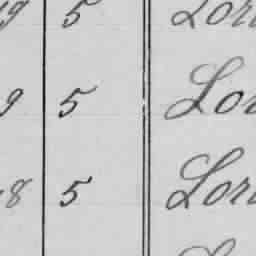 9 5 Lor
9 5 Lor
8 5 Lor